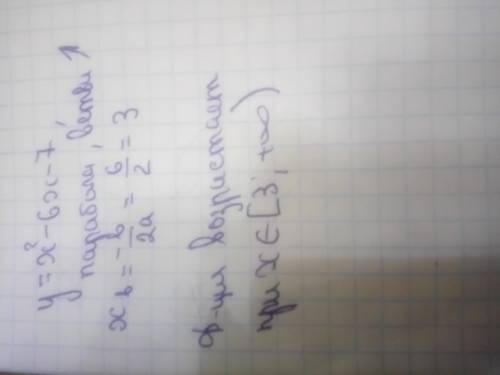 y = x² - 6x - 7
парабола, ветви ↑
xв = -b/2a = 6/2 = 3
ф-ция возрастает
при x ∈ [3; +∞)